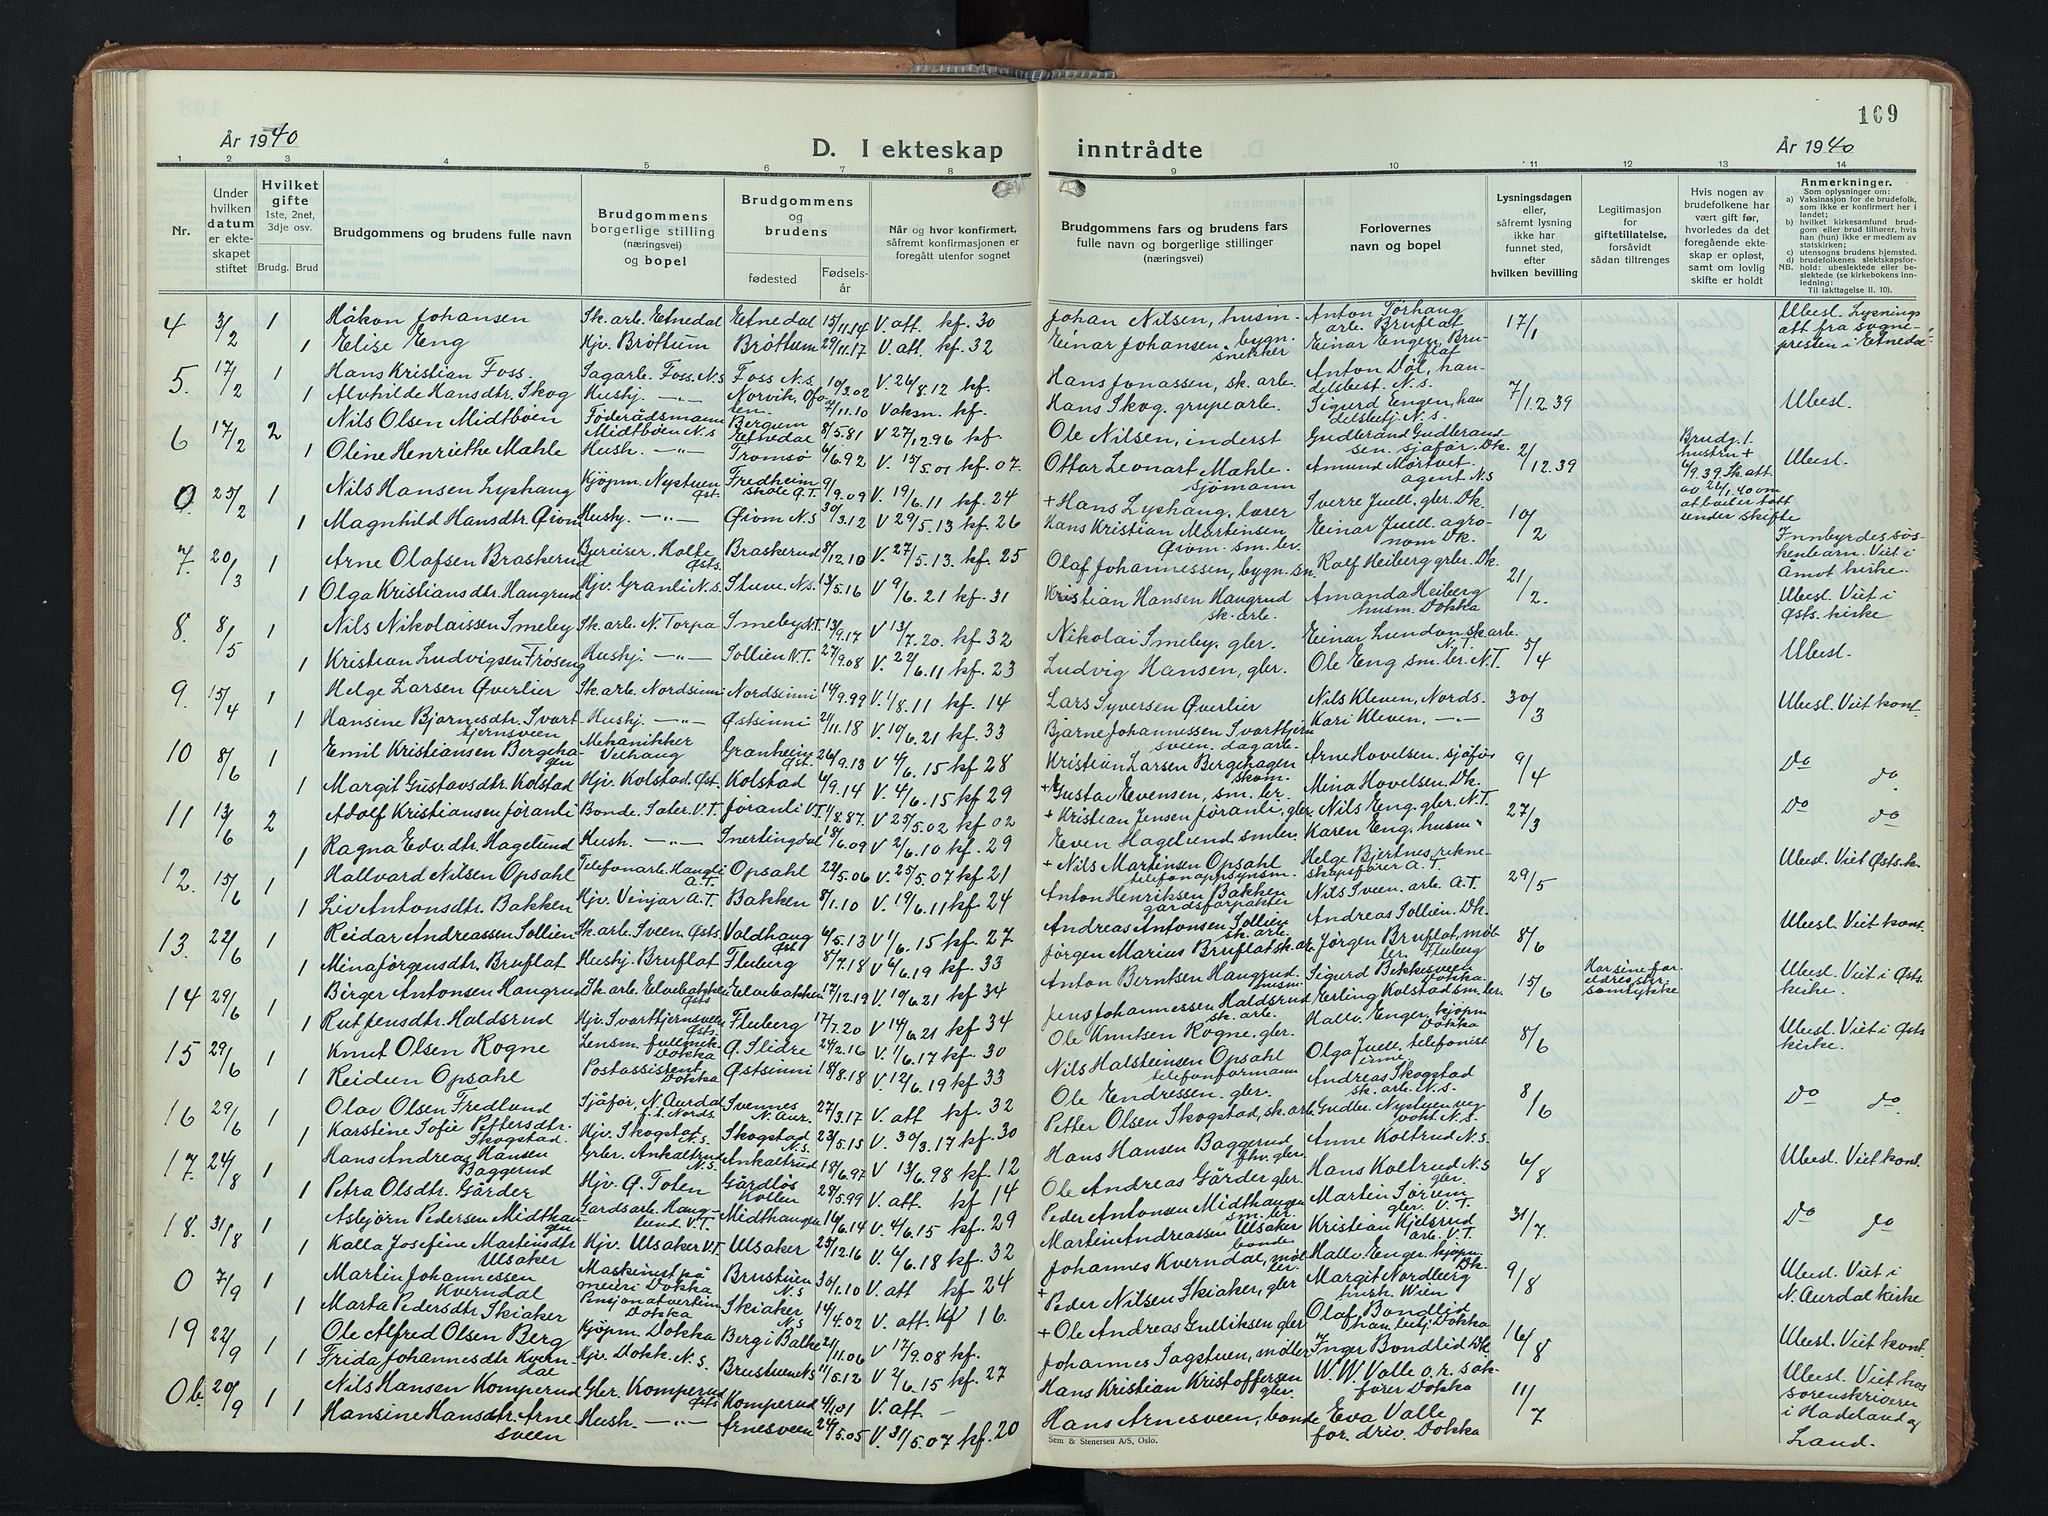 169
År 1940
D. I ekteskap inntrådte
År 1940
1 2 3 4 5 6 7 8 9 10 11 12 13 14
Nr.
Under hvilken datum er ekteskapet stiftet
Hvilket gifte 1ste, 2net, 3dje osv.
Brudg. Brud
Brudgommens og brudens fulle navn
Brudgommens borgerlige stilling (næringsvei) og bopel
Brudgommens og brudens
fødested
Fødselsår
Når og hvor konfirmert, såfremt konfirmasjonen er foregått utenfor sognet
Brudgommens fars og brudens fars fulle navn og borgerlige stillinger (næringsvei)
Forlovernes navn og bopel
Lysningsdagen eller, såfremt lysning ikke har funnet sted, efter hvilken bevilling
Legitimasjon for giftetillatelse, forsåvidt sådan tiltrenges
Hvis nogen av brudefolkene har vært gift før, hvorledes da det foregående ekteskap er opløst, samt om lovlig skifte er holdt
Anmerkninger.
Som oplysninger om:
a) Vaksinasjon for de brudefolk, som ikke er konfirmert her i landet;
b) hvilket kirkesamfund brudgom eller brud tilhører, hvis han (hun) ikke er medlem av statskirken;
c) utensogns brudens hjemsted.
d) brudefolkenes slektskapsforhold: ubeslektede eller beslektede (se kirkebokens innledning:
NB.
Til iakttagelse II. 10).
4 3/2 1 Håkon Johansen Sk. arb. Etnedal Etnedal 15/11.14 V. att. kf. 30 Johan Nilsen, husm- Anton Törhaug arb. Bruflat 17/1 Ubesl. Lysningsatt fra sognepresten i Etnedal.
1 Elise Eng Hjv. Brøttum Brøttum 29/11.17 V. att. kf. 32 Einar Johansen, bygn. snekker Einar Engen Bruflat
5. 17/2 1 Hans Kristian Foss. Sagarb. Foss. N.s Foss N.s. 10/3.02 V. 26/8.12 kf. Hans Jonassen, sk. arb. Anton Döl, handelsbest. N.s. 7/1.2.39 Ubesl.
1 Alvhilde Hansdtr. Skog Hushj. -"- Norvik, Ofoten. 11.10 Vaksn. kf. Hans Skog. grubearb. Sigurd Engen, handelsbetj. N.s.
6 17/2 2 Nils Olsen Midtböen Föderådsmann Midtböen N.s Bergum Etnedal 8/5.81 V 27/12.96 kf. Ole Nilsen, inderst Gudbrand Gudbrandsen. sjåför. Dk. 2/12.39 Brudg. 1. hustru + 6/9 39 Sk. att av 26/1.40 om at boet er tatt under skifte Ubesl.
1 Oline Henriette Mahle Hush. -"- Tromsø 6/6.92 V. 15/5.01 kf. 07. Ottar Leonart Mahle. sjömann Amund Mörtvet. agent N.s
0 25/2 1 Nils Hansen Lyshaug Kjöpm. Nystuen Øst. Fredheim skole Ø.T. 9/9.09 V. 19/6.11 kf. 24 + Hans Lyshaug. lærer Sverre Juell. gbr. Dk. 10/2 Innbyrdes søskenbarn. Viet i Åmot kirke.
1 Magnhild Hansdtr. Øiom Hushj. -"- Øiom N.s 30/3.12 V 29/5.13 kf. 26 Hans Kristian Martinsen Øiom. sm. br. Einar Juell agronom Dk.
7. 20/3 1 Arne Olafsen Braskerud Bureiser. Holte Østs. Braskerud 8/12.10 V. 27/5.13. kf. 25 Olaf Johannessen, bygn. sn. Rolf Heiberg gbr. Dk. 21/2. Ubesl. Viet i Østs. kirke
1 Olga Kristiansdtr. Haugrud Hjv. Granli N.s Stene N.s. 13/5.16 V 9/6. 21 kf. 31 Kristian Hansen Haugrud sk. arb. Amanda Heiberg husm. Dokka
8. 8/5 1 Nils Nikolaissen Smeby Sk. arb. N. Torpa Smeby N.T. 13/9.17 V 13/7. 20. kf. 32 Nikolai Smeby, gbr. Einar Lundon sk. arb. N.T. 5/4 Ubesl.
1 Kristian Ludvigsen Frøseng Hushj. -"- Sollien N.T. 27/9.08 V. 22/6.11 kf. 23 Ludvig Hansen, gbr. Ole Eng sm. br. N.T.
9. 15/4 1 Helge Larsen Øverlier Sk. arb. Nordsinni Nordsinni 14/9.99 V. 1/8.11 kf. 14 Lars Syversen Øverlier Nils Kleven, Nords. 30/3 Ubesl. Viet kont.
1 Hansine Bjarnesdtr. Svarttjernsveen Hushj. -"- Østsinni 21/11.18 V. 10/6. 21 kf. 33 Bjarne Johannessen Svarttjernsveen. dagarb. Kari Kleven, -"-
10 8/6 1 Emil Kristiansen Bergehagen Mekanikker Veihaug Granheim Øst. 26/9.13 V 4/6. 15 kf 28 Kristian Larsen Bergehagen skom. Arne Hovelsen, sjåför 9/4 Do do
1 Margit Gustavsdtr. Kolstad Hjv. Kolstad. Øst. Kolstad 4/9.14 V. 4/6. 15 kf 29 + Gustav Evensen, sm. br. Mina Hovelsen, Dk.
11 13/6 2 Adolf Kristiansen Jøranli Bonde. Sater. V.T. Jøranli V.T. 1/8.87. V 25/5.02 kf 02 + Kristian Jensen Jøranli, gbr. Nils Eng. gbr. N.T. 27/3 Do do
1 Ragna Edv. dtr. Hagelund Hush. -"- Snertingdal 18/6.09 V 2/6. 10 kf. 29 Even Hagelund smbr. Karen Eng. husm "
12. 15/6 1 Hallvard Nilsen Opsahl Telefonarb. Haugli A.T. Opsahl 22/5.06 V. 25/5.07 kf 21 + Nils Martinsen Opsahl telefonoppsynsm. Helge Bjertnes, rekneskapsfører A.T. 29/5 Ubesl. Viet Østs. k.
1 Liv Antonsdtr. Bakken Hjv. Vinjar A.T. Bakken 8/1.10 V. 19/6. 11 kf 24 Anton Henriksen Bakken gårdsforpakter Nils Sveen. arb. A.T.
13. 22/6 1 Reidar Andreassen Sollien Sk. arb. Sveen. Østs Voldhaug Øst 6/5.13 V 1/6. 15 kf. 27. Andreas Antonsen Sollien sk. arb. Andreas Sollien. Dk. 8/6 Ubesl. Viet kont.
1 Mina Jørgensdtr. Bruflat Hushj. Bruflat Fluberg 8/7.18 V 6/6. 19 kf. 33 Jørgen Marius Bruflat sk. arb. Jørgen Bruflat, møller. Fluberg
14 29/6 1 Birger Antonsen Haugrud Sk. arb. Elvebakken Østs Elvebakken 17/12.19 V. 19/6. 21 kf. 34 Anton Berntsen Haugrud. husm. Sigurd Bekkesveen Dokka. 15/6 Har sine foreldres skr. samtykke Ubesl. Viet i Østs. kirke.
1 Rut Jensdtr. Haldsrud Hjv. Svarttjernsveen Østs. Fluberg 17/7.20 V 14/6. 21 kf. 34 Jens Johannessen Haldsrud sk. arb. Erling Kolstad sm. br.
15 29/6 1 Knut Olsen Rogne Lensm. fullmek. Dokka Ø. Slidre 24/2.16 V. 1/6. 17 kf. 30 Ole Knutsen Rogne. gbr. Hallv. Enger, kjöpm Dokka 8/6 Ubesl. Viet i Østs kirke.
1 Reidun Opsahl Postassistent Dokka Østsinni 18/8.18 V. 12/6. 19 kf 33 Nils Halsteinsen Opsahl telefonformann Olga Juell, telefonist inne
16 29/6 1 Olav Olsen Fredlund Sjåför, N. Aurdal f.t. Nords. Svennes N. Aur. 27/3.17 V. att kf. 32 Ole Endressen. gbr. Andreas Skogstad sk. arb. N.s. 8/6 Do do.
1 Karstine Sofie Pettersdtr. Skogstad. Hjv. Skogstad N.s. Skogstad N.s. 23/5.15 V. 30/3.17 kf. 30 Petter Olsen Skogstad, sk. arb. Gudbr. Nystuen vegvokt. N.s.
17. 24/8 1 Hans Andreas Hansen Baggerud Grbr. Ankaltrud N.s. Ankaltrud 18/6.97 V 13/6. 98 kf. 12 Hans Hansen Baggerud fhv. gbr. Anne Koltrud N.s. 6/8 Ubesl. Viet kont.
1 Petra Olsdtr. Gårder Hjv. Ø. Toten Gårdløs Kollen 28/5.99 V. att kf 14 Ole Andreas Gårder gbr. Hans Koltrud N.s gbr.
18. 31/8 1 Asbjørn Pedersen Midthaugen Gardsarb. Hauglund. V.T. Midthaugen 16/6.14 V. 4/6. 15 kf. 29 Peder Antonsen Midthaugen sm. br. Martin Sørum gbr. V.T. 31/7. Do do
1 Kalla Josefine Martinsdtr Ulsaker Hjv. Ulsaker V.T. Ulsaker 25/12.16 V. 6/6. 18 kf. 32 Martin Andreassen Ulsaker bonde Kristian Kjelsrud arb. V.T.
0 7/9 1 Martin Johannessen Kverndal Maskinist på meieri Dokka Brustuen N.s 30/1.10 V. att kf 24 Johannes Kverndal, møller. Hallv. Enger kjöpm. Dk. 9/8 Ubesl. Viet i N. Aurdal kirke
1 Marta Pedersdtr Skiaker Pensjonatvertinne Dokka Skiaker N.s 14/4.02 V. att. kf 16. + Peder Nilsen Skiaker, gbr Margit Nordberg hush. Wien
19 22/9 1 Ole Alfred Olsen Berg Kjöpm. Dokka Berg i Balke 21/11.06 V 17/9.08 kf. + Ole Andreas Gulliksen gbr Olaf Bondlid han. betj Dokka 16/8 Ubesl. Viet kont.
1 Frida Johannesdtr Kverndal Hjv. Dokk. N.s. Brustuen N.s 11/5.12 V 2/6. 15 kf. 27 Johannes Sagstuen, møller Inger Bondlid Dk.
Ob. 20/9 1 Nils Hansen Komperud Gbr. Komperud Østs Komperud 4/1.01 V. att - Hans Kristian Kristoffersen gbr. W. W. Valle o.r. sakfører Dokka 11/7 Ubesl. Viet hos sorenskriveren i Hadeland og Land.
1 Hansine Hansdtr. Arnesveen Hush. -"- Arnesveen 24/5.05 V. 31/5.07 kf. 20 Hans Arnesveen, bonde Eva Valle for. driv. Dokka
Sem & Stenersen A/S, Oslo.